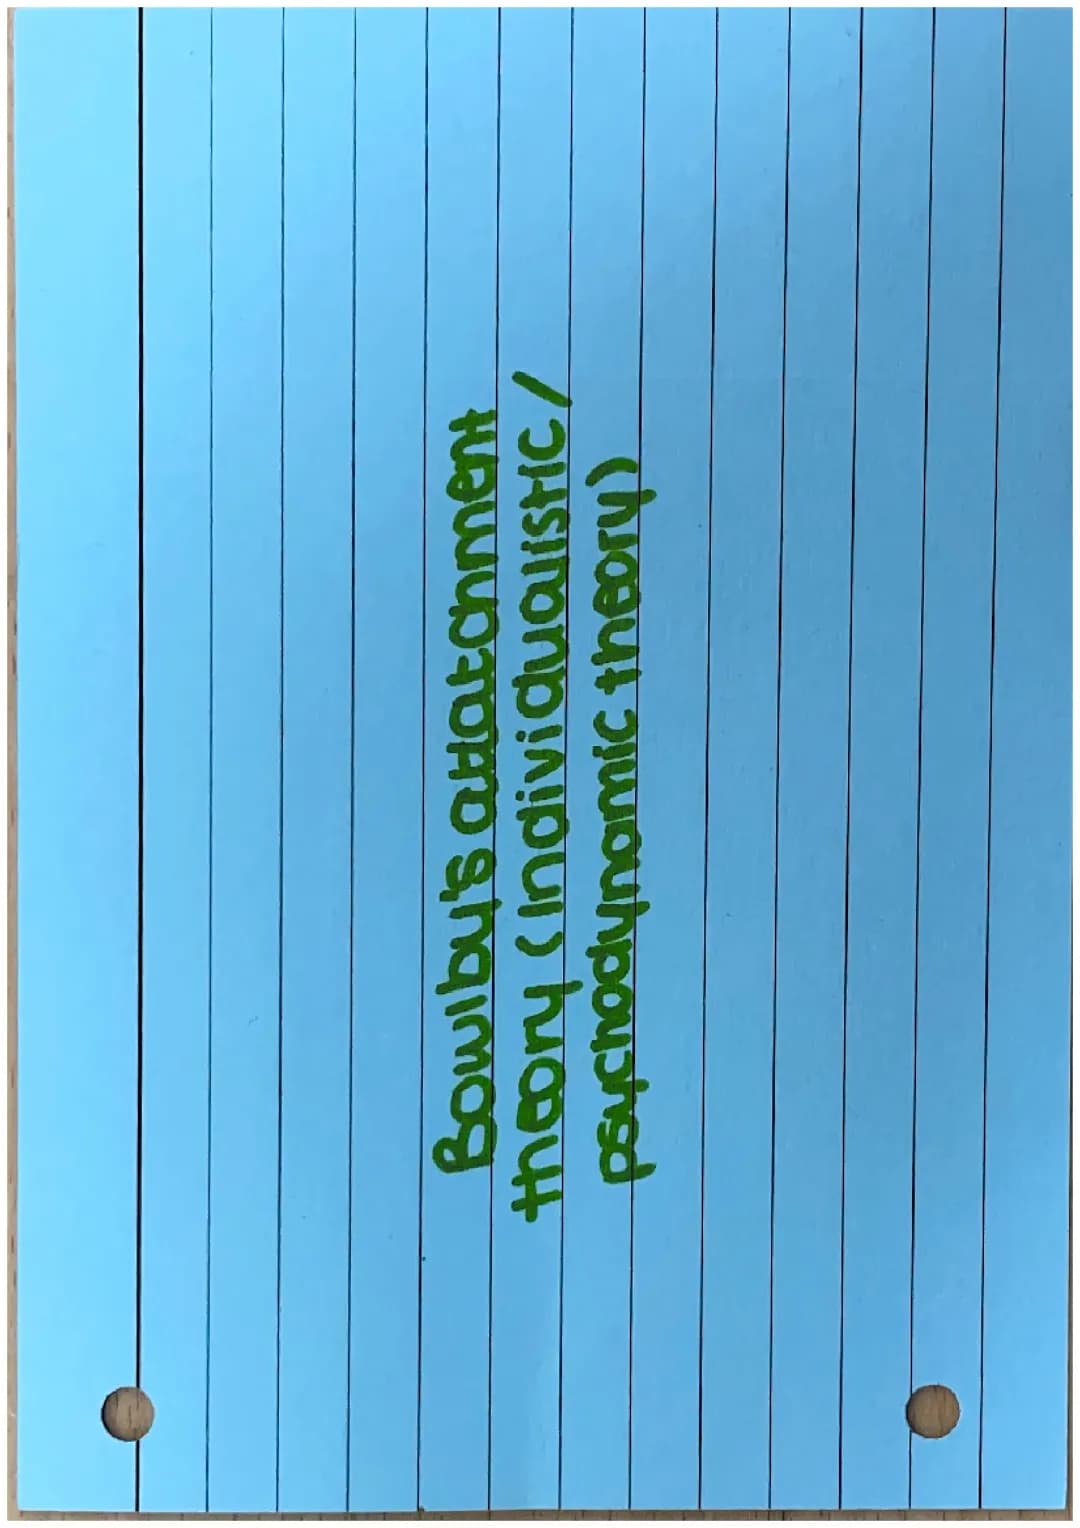 Bowlby's attatchment
theory (individualistic/
psychodynamic theory)